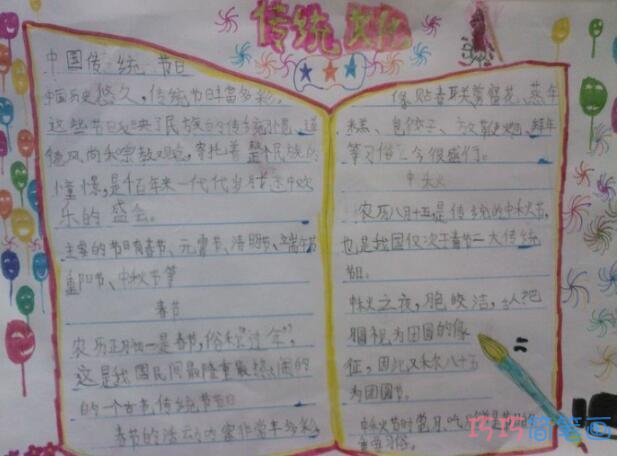 传统文化
中国传统节日
中国历史悠久,传统节日丰富多彩。
这些节日反映了民族的传统习惯、道
德风尚和宗教观念,寄托着整个民族的
憧憬,是千百年来一代代岁月
乐的盛会。
主要的节日有春节、元宵节、清明节、端午节
重阳节、中秋节等
春节
农历正月初一是春节,俗称“过年”,
这是我国民间最隆重最热闹的
的一个古老传统节日
春节的活动内容非常丰多彩
像贴春联剪窗花、蒸年
糕、包饺子、放鞭炮、拜年
等习俗至今很盛行。
中秋
农历八月十五是传统的中秋节,
也是我国仅次于春节二大传统
节日。
中秋之夜,月包皎洁,古人把
圆视为团圆的象
征,因此又称八十五
为团圆节。
中秋节时赏月吃
习俗。
巧巧简笔画